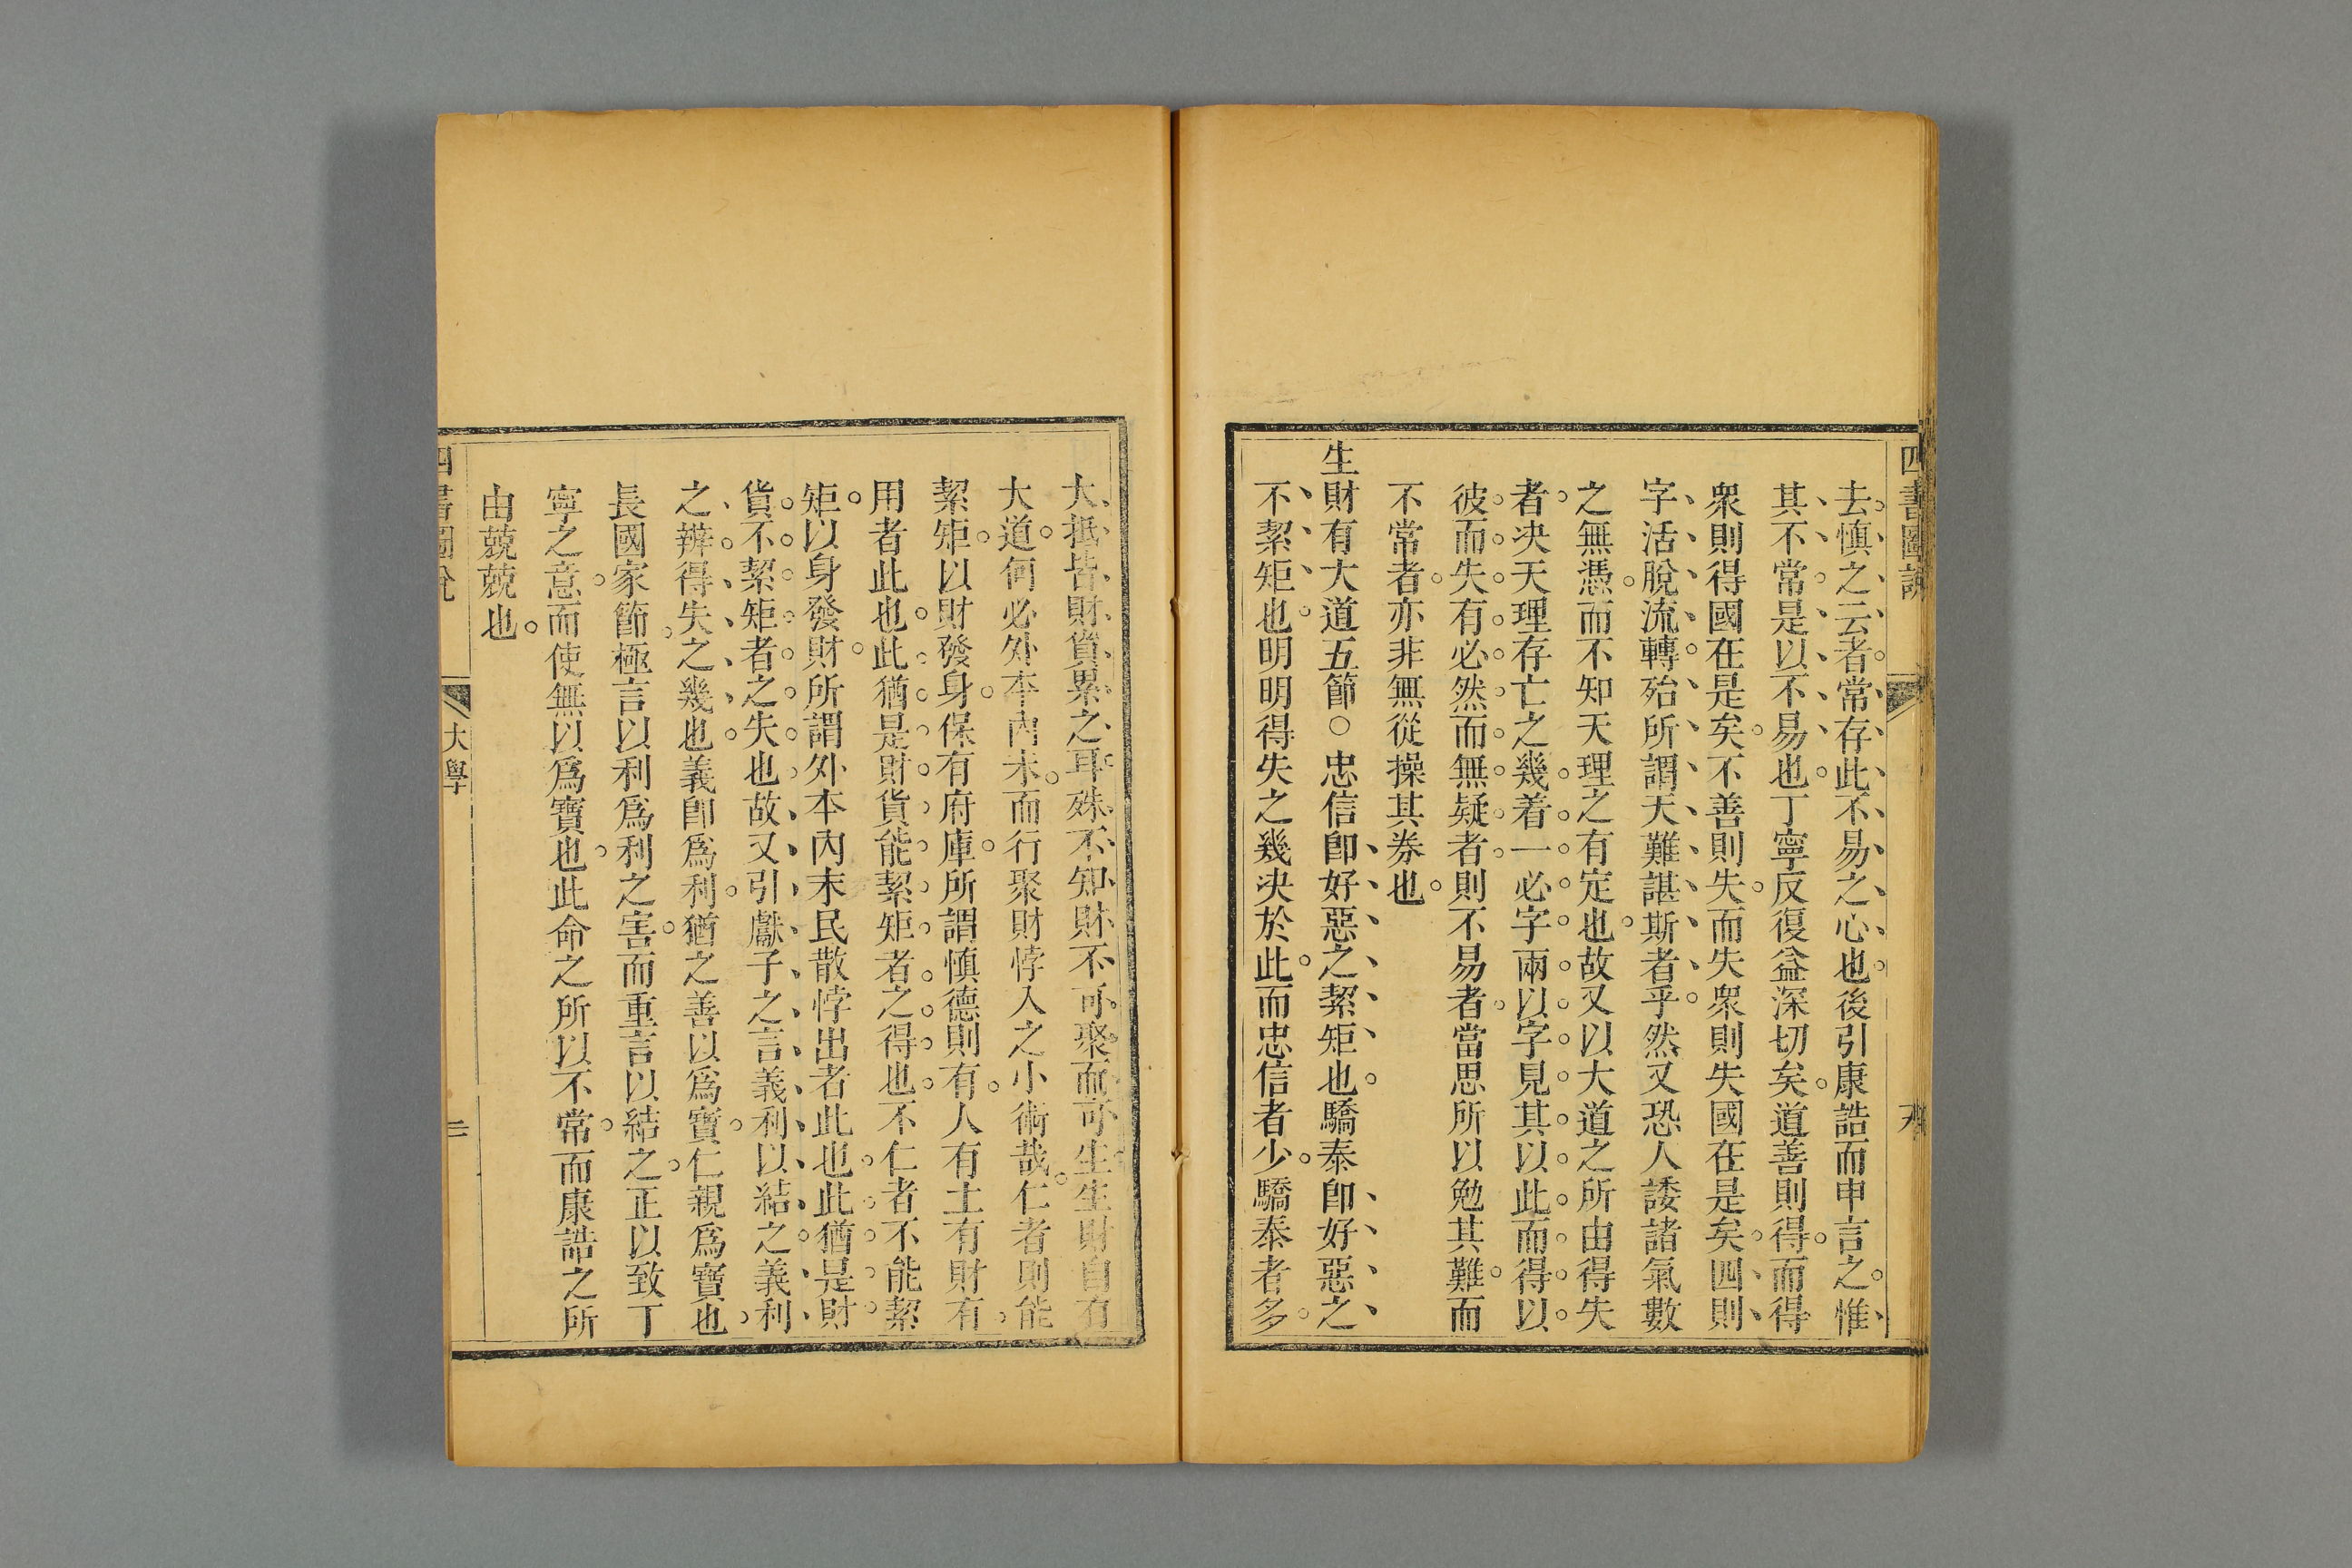 四書圖說
去慎之云者常存此不易之心也後引康誥而申言之惟
其不常是以不易也丁寧反復益深切矣道善則得而得
衆則得國在是矣不善則失而失衆則失國在是矣四則
字活脫流轉殆所謂天難諶斯者乎然又恐人諉諸氣數
之無憑而不知天理之有定也故又以大道之所由得失
者决天理存亡之幾着一必字兩以字見其以此而得以
彼而失有必然而無疑者則不易者當思所以勉其難而
不常者亦非無從操其券也
生財有大道五節○忠信卽好惡之絜矩也驕泰卽好惡之
不絜矩也明明得失之幾决於此而忠信者少驕泰者多
大抵皆財貨累之耳殊不知財不可聚而可生生財自有
大道何必外本內末而行聚財悖入之小術哉仁者則能
絜矩以財發身保有府庫所謂慎德則有人有土有財有
用者此也此猶是財貨能絜矩者之得也不仁者不能絜
矩以身發財所謂外本內末民散悖出者此也此猶是財
貨不絜矩者之失也故又引獻子之言義利以結之義利
之辨得失之幾也義卽爲利猶之善以爲寶仁親爲寶也
長國家節極言以利爲利之害而重言以結之正以致丁
寧之意而使無以爲寶也此命之所以不常而康誥之所
由兢兢也
四書圖說
大學